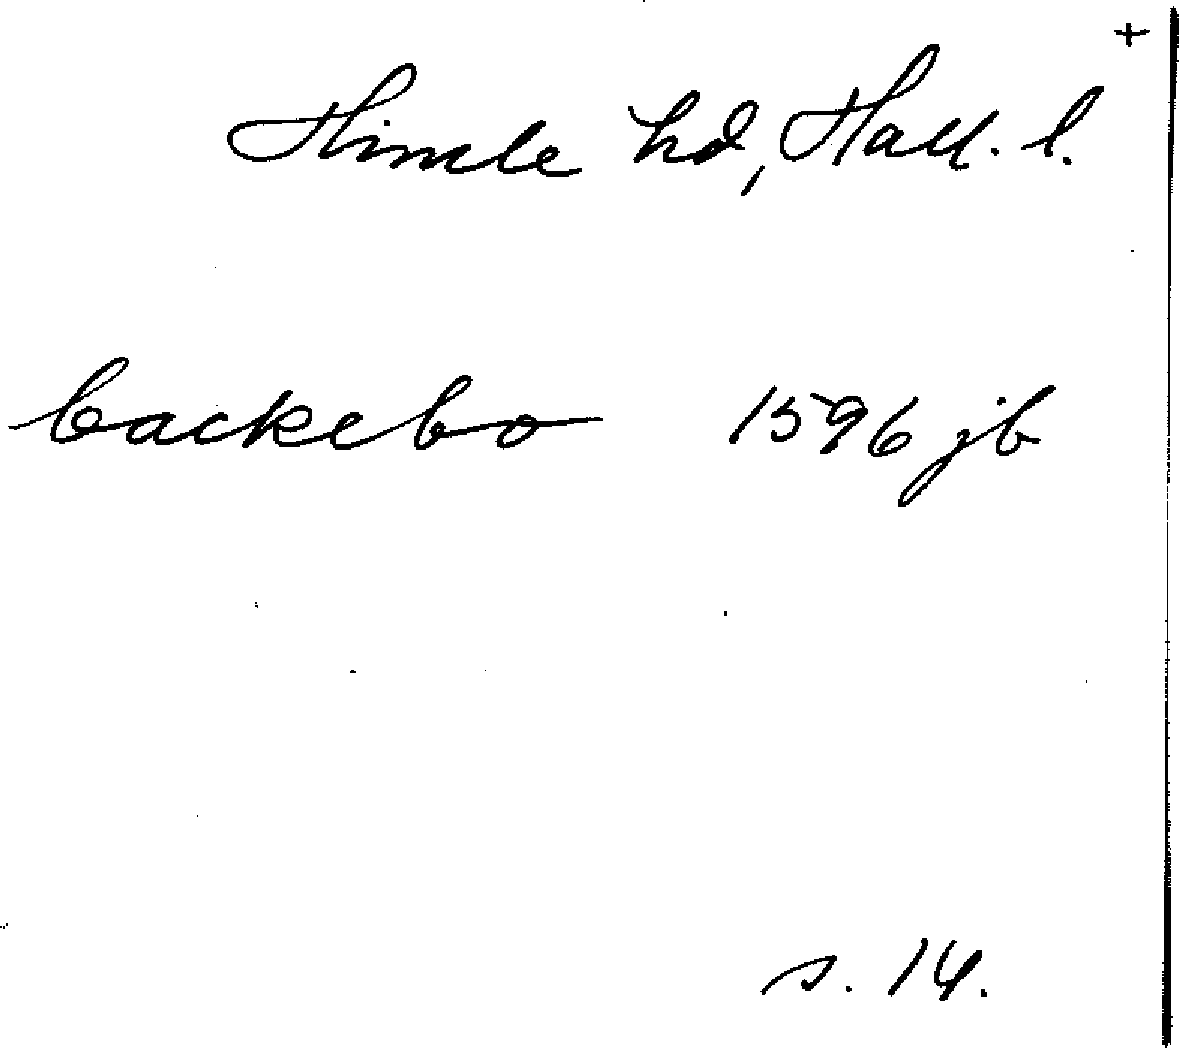 +
Himle hd, Hall. l.
backebo 1596 jb
s. 14.